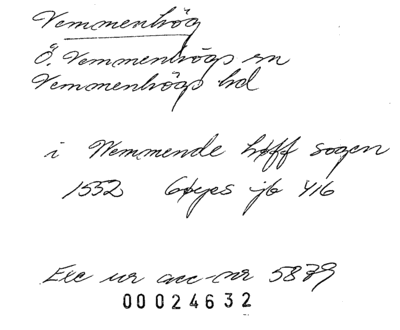 Vemmenhög
Ö. Vemmenhögs sn
Vemmenhögs hd
i Wemmende høff sogen
1552 Gøyes jb 416
Exc ur acc-nr 5879
00024632